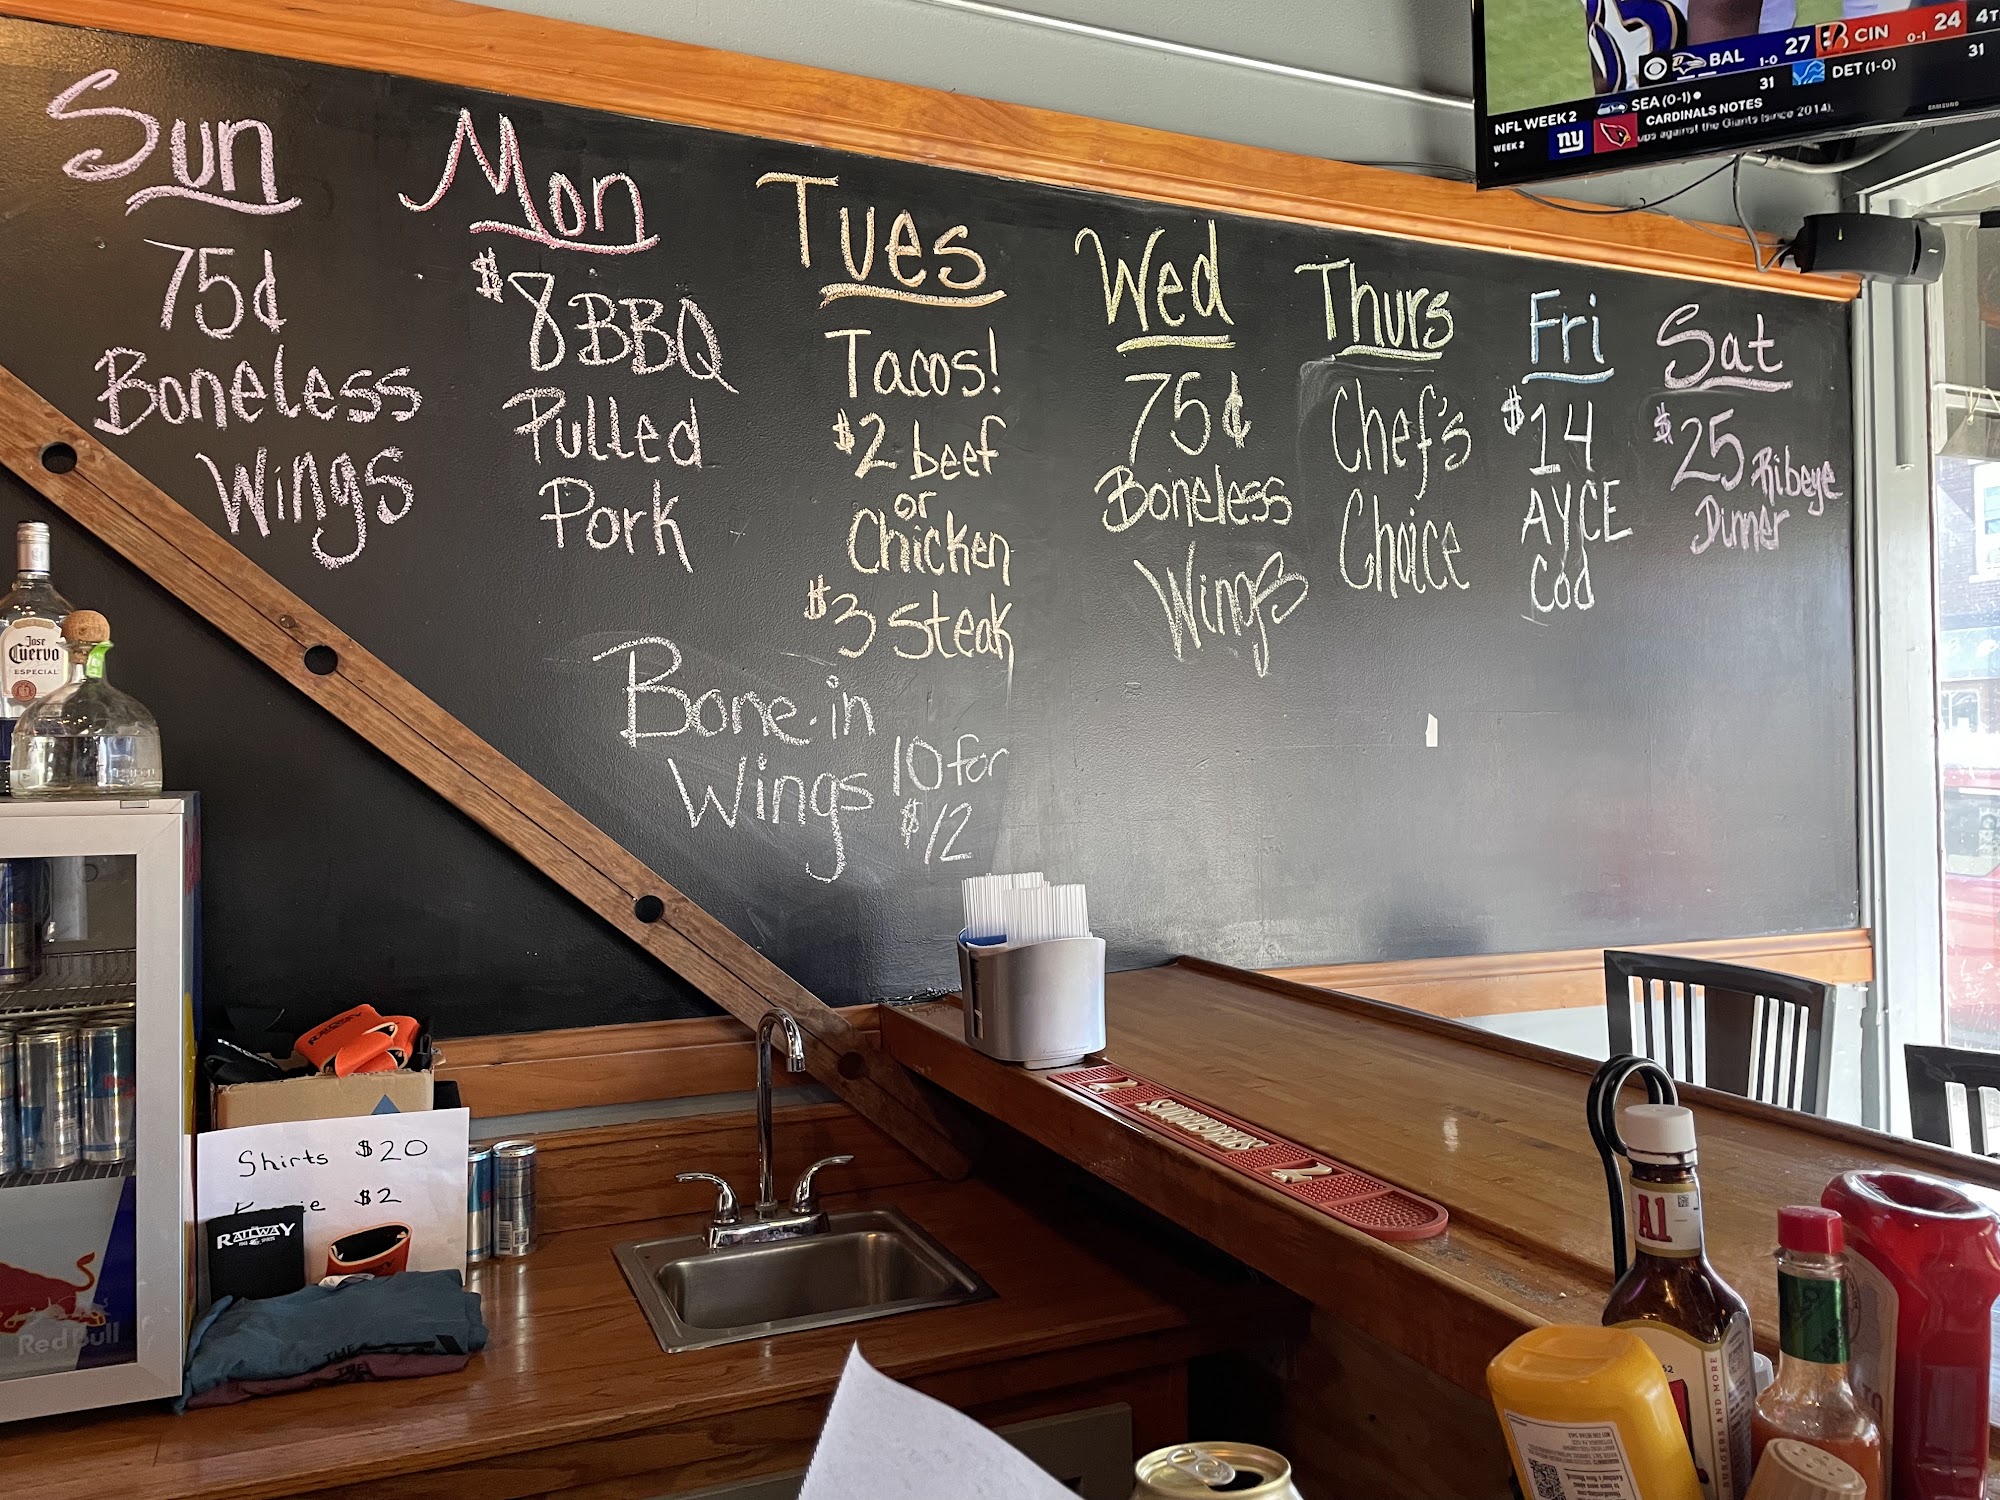 Sun
75¢
Boneless
Wings
Mon
$8 BBQ
Pulled
Pork
Tues
Tacos!
$2 beef
or
Chicken
$3 Steak
Wed
75¢
Boneless
Wings
Thurs
Chef's
Choice
Fri
$14
AYCE
Cod
Sat
$25 Ribeye
Dinner
Bone-in
Wings 10 for
$12
BAL 1-0 27 CIN 0-1 24 4T
SEA (0-1) 31 DET (1-0) 31
NFL WEEK 2
CARDINALS NOTES
WEEK 2 ny ups against the Giants (since 2014).
SAMSUNG
Jose
Cuervo
ESPECIAL
Shirts $20
$2
RAILWAY
Red Bull
THE
THE
A1
BURGERS AND MORE